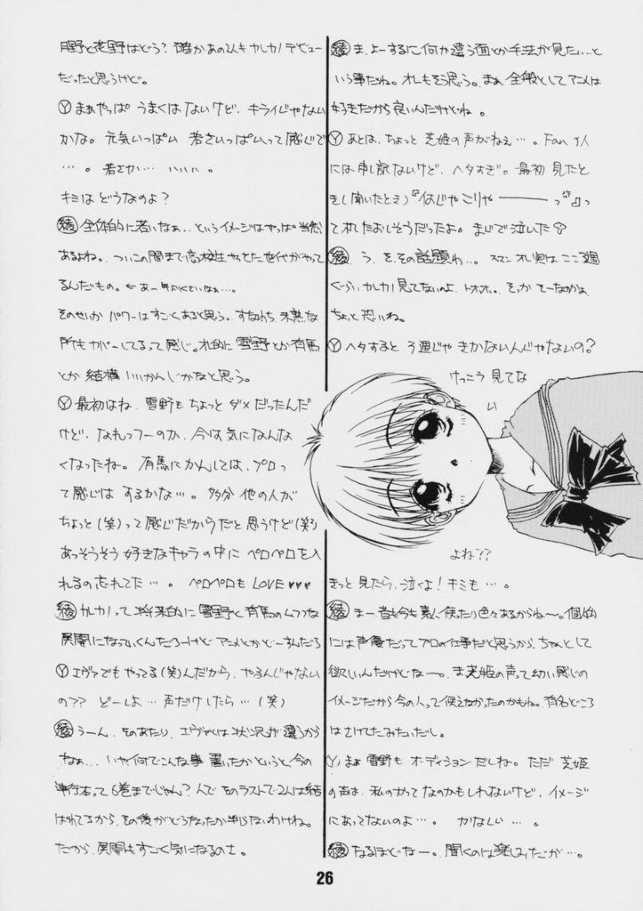 月野と花野はどう？確かあの2人もカレカノデビュー
だったと思うけど。
Ⓨまぁやっぱ うまくはないけど、キライじゃない
かな。元気いっぱい 若さいっぱいって感じで
…。若さか… いいい。
キミはどうなのよ？
綾 全体的に若いなぁ…というイメージはやっぱ当然
あるよね。ついこの間まで高校生やってた世代がやって
るんだもの。
そのせいか パワーはすごくあると思う。すなわち、未熟な
所もカバーしてるって感じ。オレ的に雪野とか有馬
とか結構いいかんじかなと思う。
Ⓨ最初はね、雪野もちょっとダメだったんだ
けど、なれっつーのか、今は気になんな
くなったね。有馬にかんしては、プロっ
て感じはするかな…。多分 他の人が
ちょっと(笑)って感じだからだと思うけど(笑)
あっそうそう 好きなキャラの中にペロペロを入
れるの忘れてた…。ペロペロもLOVE♥♥♥
綾 カレカノって将来的に雪野と有馬のムフフな
展開になっていくんだろーけど アニメとかどーすんだろ
Ⓨエヴァでもやってる(笑)んだから、やるんじゃない
の？？ どーしよ…声だけしたら…(笑)
綾 うーん、そのあたり、エヴァとは状況が違うから
なぁ… いや何でこんな事 書いたかというと、今の
単行本って6巻までじゃん？んで そのラストで2人は結
ばれてるから、その後がどうなったか判らないわけね。
だから、展開もすごく気になるのさ。
綾 ま、よーするに何か違う面とか手法が見たい…と
いう事だね。オレもそう思う。まぁ 全般としてアニメは
好きだから良いんだけどね。
Ⓨあとは、ちょっと芝姫の声がねぇ…。Fanの人
には申し訳ないけど、ヘタすぎ。最初 見たと
き(聞いたとき)『なんじゃこりゃーーーっ』っ
てれたおしそうだったよ。まじで泣いた
綾 う、その話題わ…。スマン オレ実は ここ3週
ぐらい カレカノ見てないのよ、トホホ。
ちょっと悪いね。
Ⓨヘタすると 3週じゃ きかないんじゃないの？
けっこう 見てな
い
よね？？
きっと見たら、泣くよ！キミも…。
綾 まー昔も今も素人使ったり色々あるからね〜。個人的
には声優だってプロの仕事だと思うから、ちゃんとして
欲しいんだけどなー。ま芝姫の声って幼い感じの
イメージだから今の人って使えなかったのかもね。有名どころ
はさけてたみたいだし。
Ⓨまぁ 雪野も オーディションだしね。ただ 芝姫
の声は、私のかってなのかもしれないけど、イメージ
にあってないのよ…。かなしい…。
綾 なるほどなー。聞くのは楽しみだが…。
26